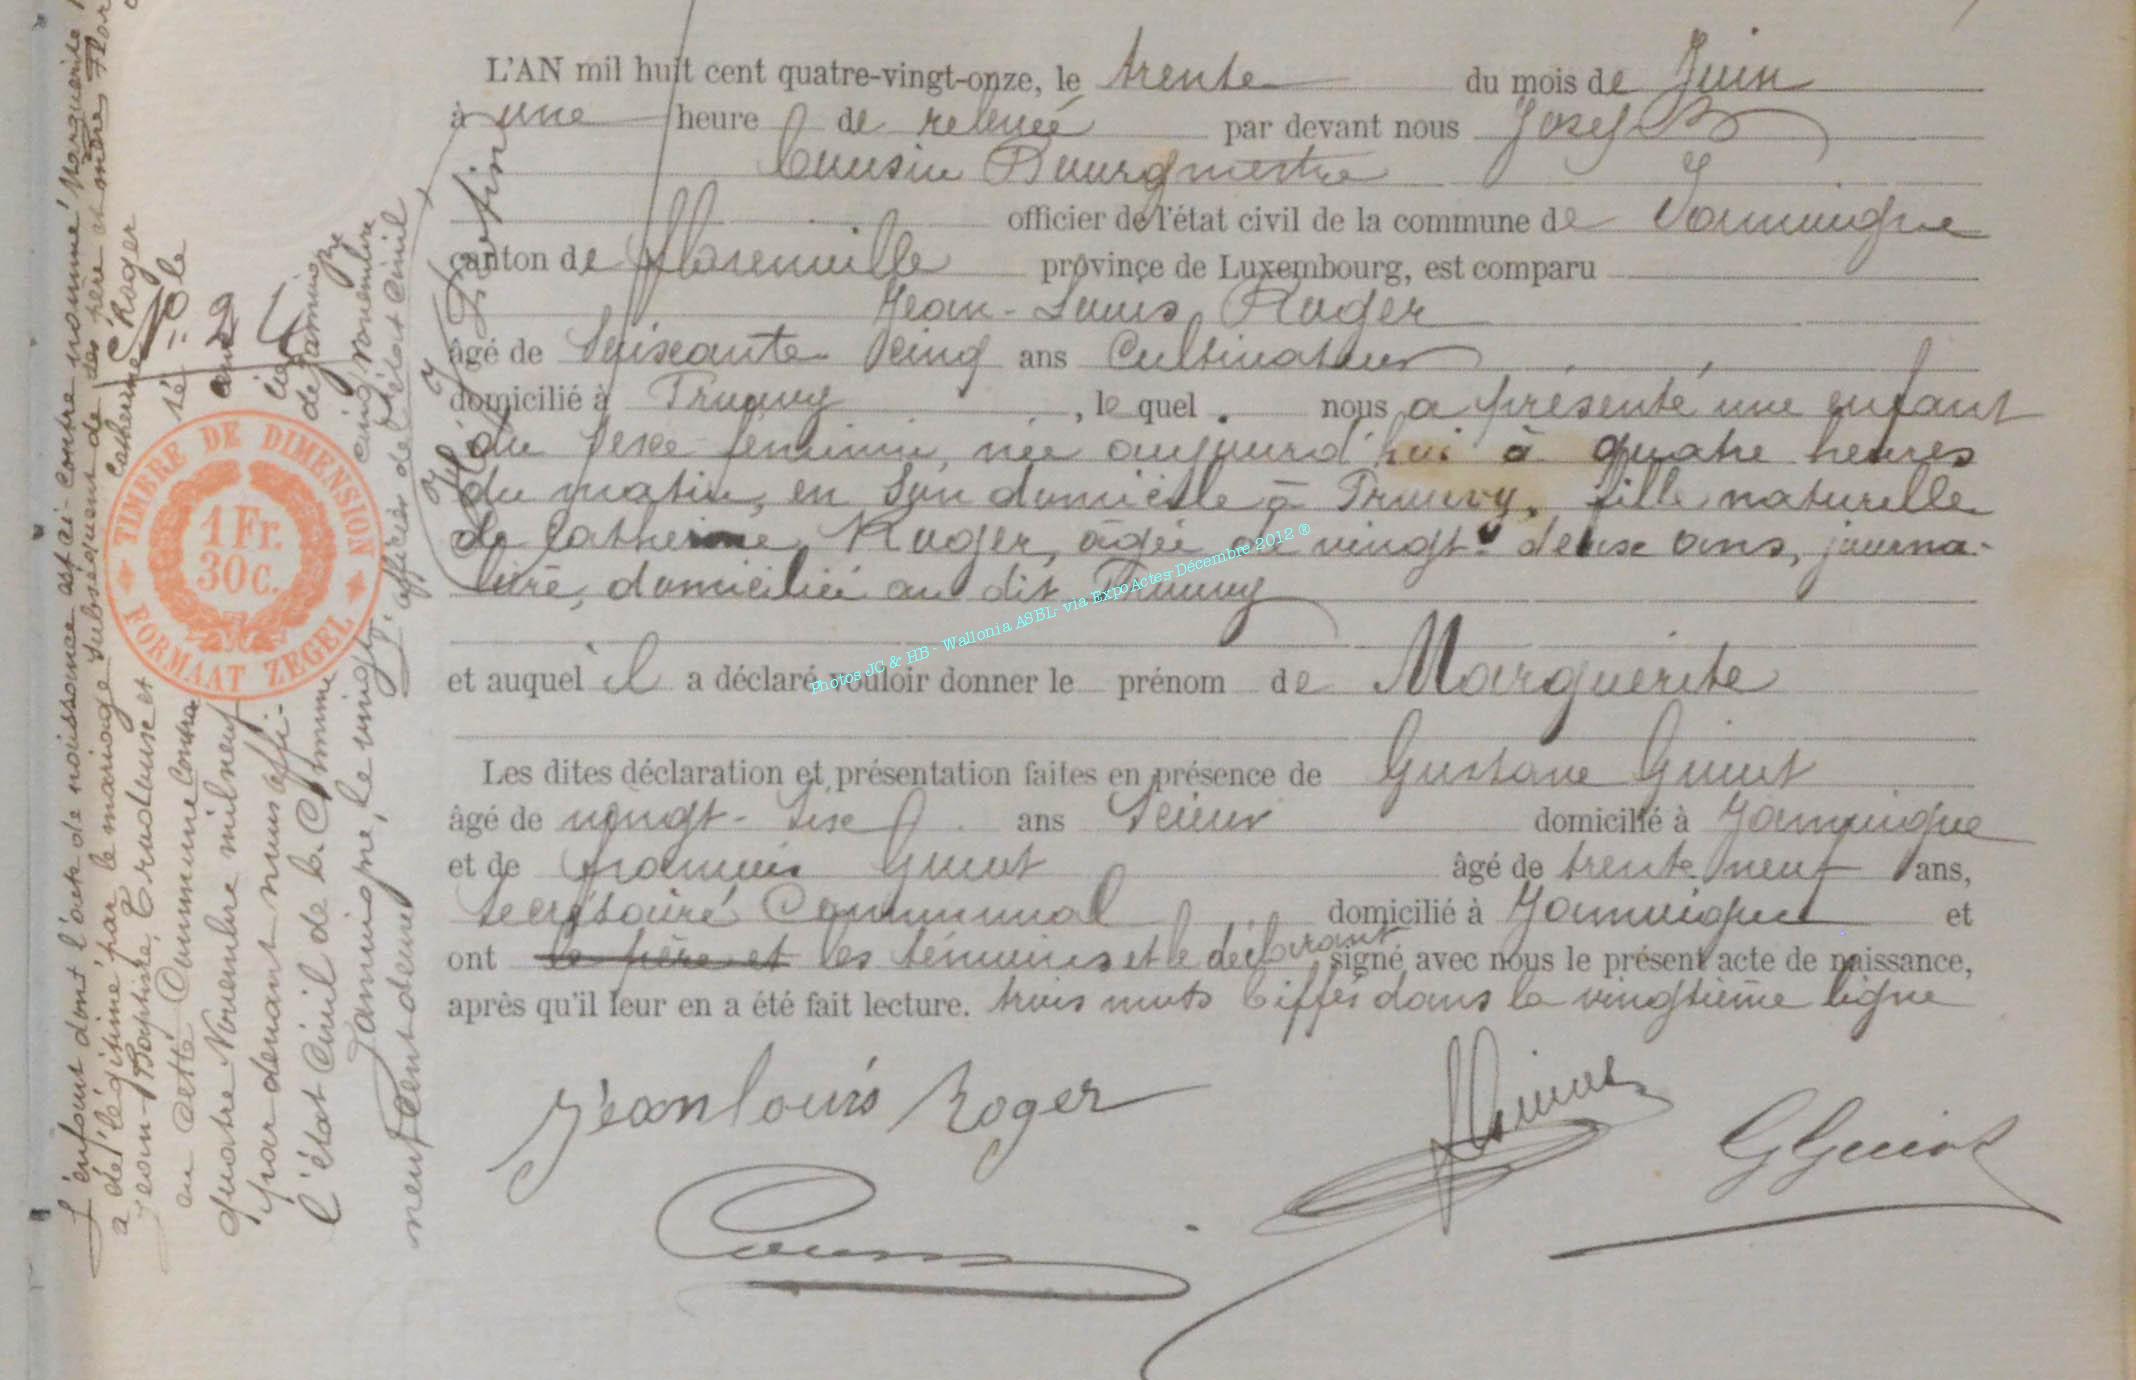 L'AN mil huit cent quatre-vingt-onze, le trente du mois de Juin
à une heure de relevée par devant nous Joseph
Cousin Bourgmestre
officier de l'état civil de la commune de Jamoigne
canton de Florenville province de Luxembourg, est comparu
Jean-Louis Roger
âgé de Soixante cinq ans Cultivateur
domicilié à Prouvy, le quel nous a présenté une enfant
du sexe féminin, née aujourd'hui à quatre heures
du matin, en son domicile à Prouvy, fille naturelle
de Catherine Roger, âgée de vingt-deux ans, journa-
lière, domiciliée au dit Prouvy
et auquel il a déclaré vouloir donner le prénom de Marguerite
Les dites déclaration et présentation faites en présence de Gustave Guiot
âgé de vingt-six ans Scieur domicilié à Jamoigne
et de François Guiot âgé de trente neuf ans,
Secrétaire Communal domicilié à Jamoigne et
ont le père et les témoins et le déclarant signé avec nous le présent acte de naissance,
après qu'il leur en a été fait lecture. trois mots biffés dans la vingtième ligne
Jean louis Roger
GGuiot
Cousin
N° 24
Roger
Catherine
TIMBRE DE DIMENSION
1 Fr.
30 c.
FORMAAT ZEGEL
L'enfant dont l'acte de naissance est ci-contre nommé Marguerite
a été légitimé par le mariage subséquent de ses père et mère
Jean-Baptiste, Bradeux et Catherine Roger
en cette Commune
quatre Novembre mil neuf
par devant nous offi-
l'état civil de la Commune de Jamoigne
Jamoigne, le vingt cinq Novembre
neuf cent deux
L'officier de l'état civil
Photos JC & HB - Wallonia ASBL - via ExpoActes Décembre 2012 ®